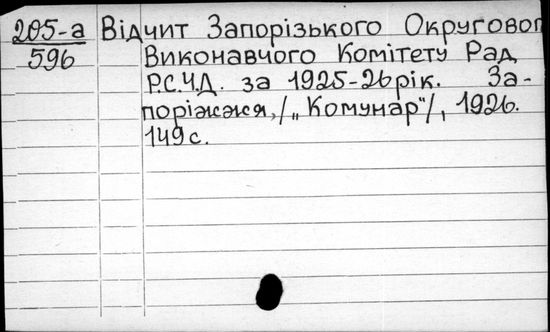 205-а Відчит Запорізького Округового
596 Виконавчого Комітету Рад
Р.С.Ч.Д. за 1925-26 рік. За-
поріжжя,/„Комунар"/, 1926.
149 с.